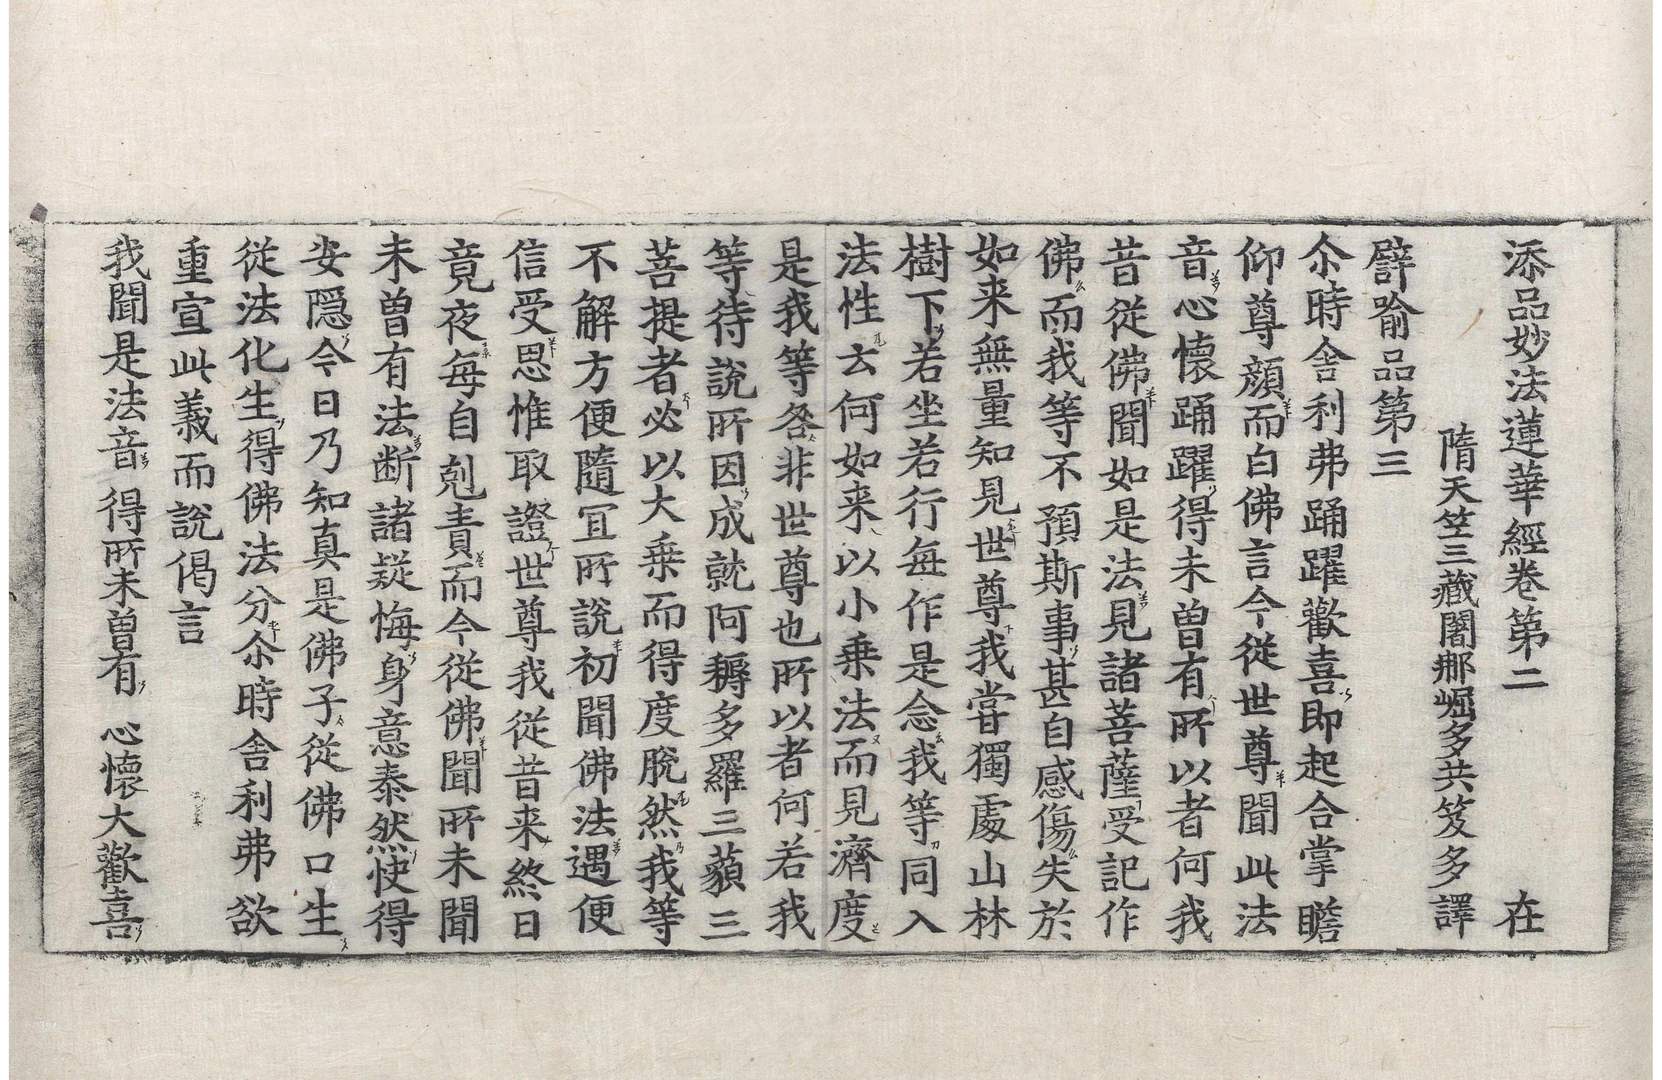 添品妙法蓮華經卷第二 在
隋天竺三藏闍那崛多共笈多譯
譬喩品第三
尒時舍利弗踊躍歡喜即起合掌瞻
仰尊顔而白佛言今從世尊聞此法
音心懷踊躍得未曽有所以者何我
昔從佛聞如是法見諸菩薩受記作
佛而我等不預斯事甚自感傷失於
如来無量知見世尊我甞獨處山林
樹下若坐若行每作是念我等同入
法性云何如来以小乗法而見濟度
是我等咎非世尊也所以者何若我
等待說所因成就阿耨多羅三藐三
菩提者必以大乗而得度脫然我等
不解方便隨冝所說初聞佛法遇便
信受思惟取證世尊我從昔来終日
竟夜每自剋責而今從佛聞所未聞
未曽有法断諸疑悔身意泰然快得
安隱今日乃知真是佛子從佛口生
從法化生得佛法分尒時舍利弗欲
重宣此義而說偈言
我聞是法音 得所未曽有 心懷大歡喜